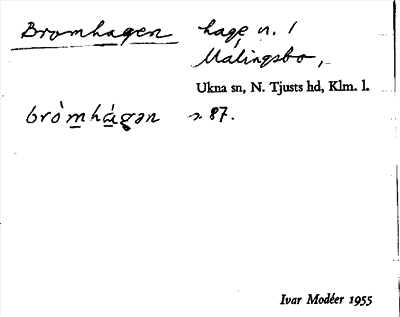 Bromhagen hage n. 1
Målingsbo,
Ukna sn, N. Tjusts hd, Klm. l.
bròmhágən s. 87.
Ivar Modéer 1955